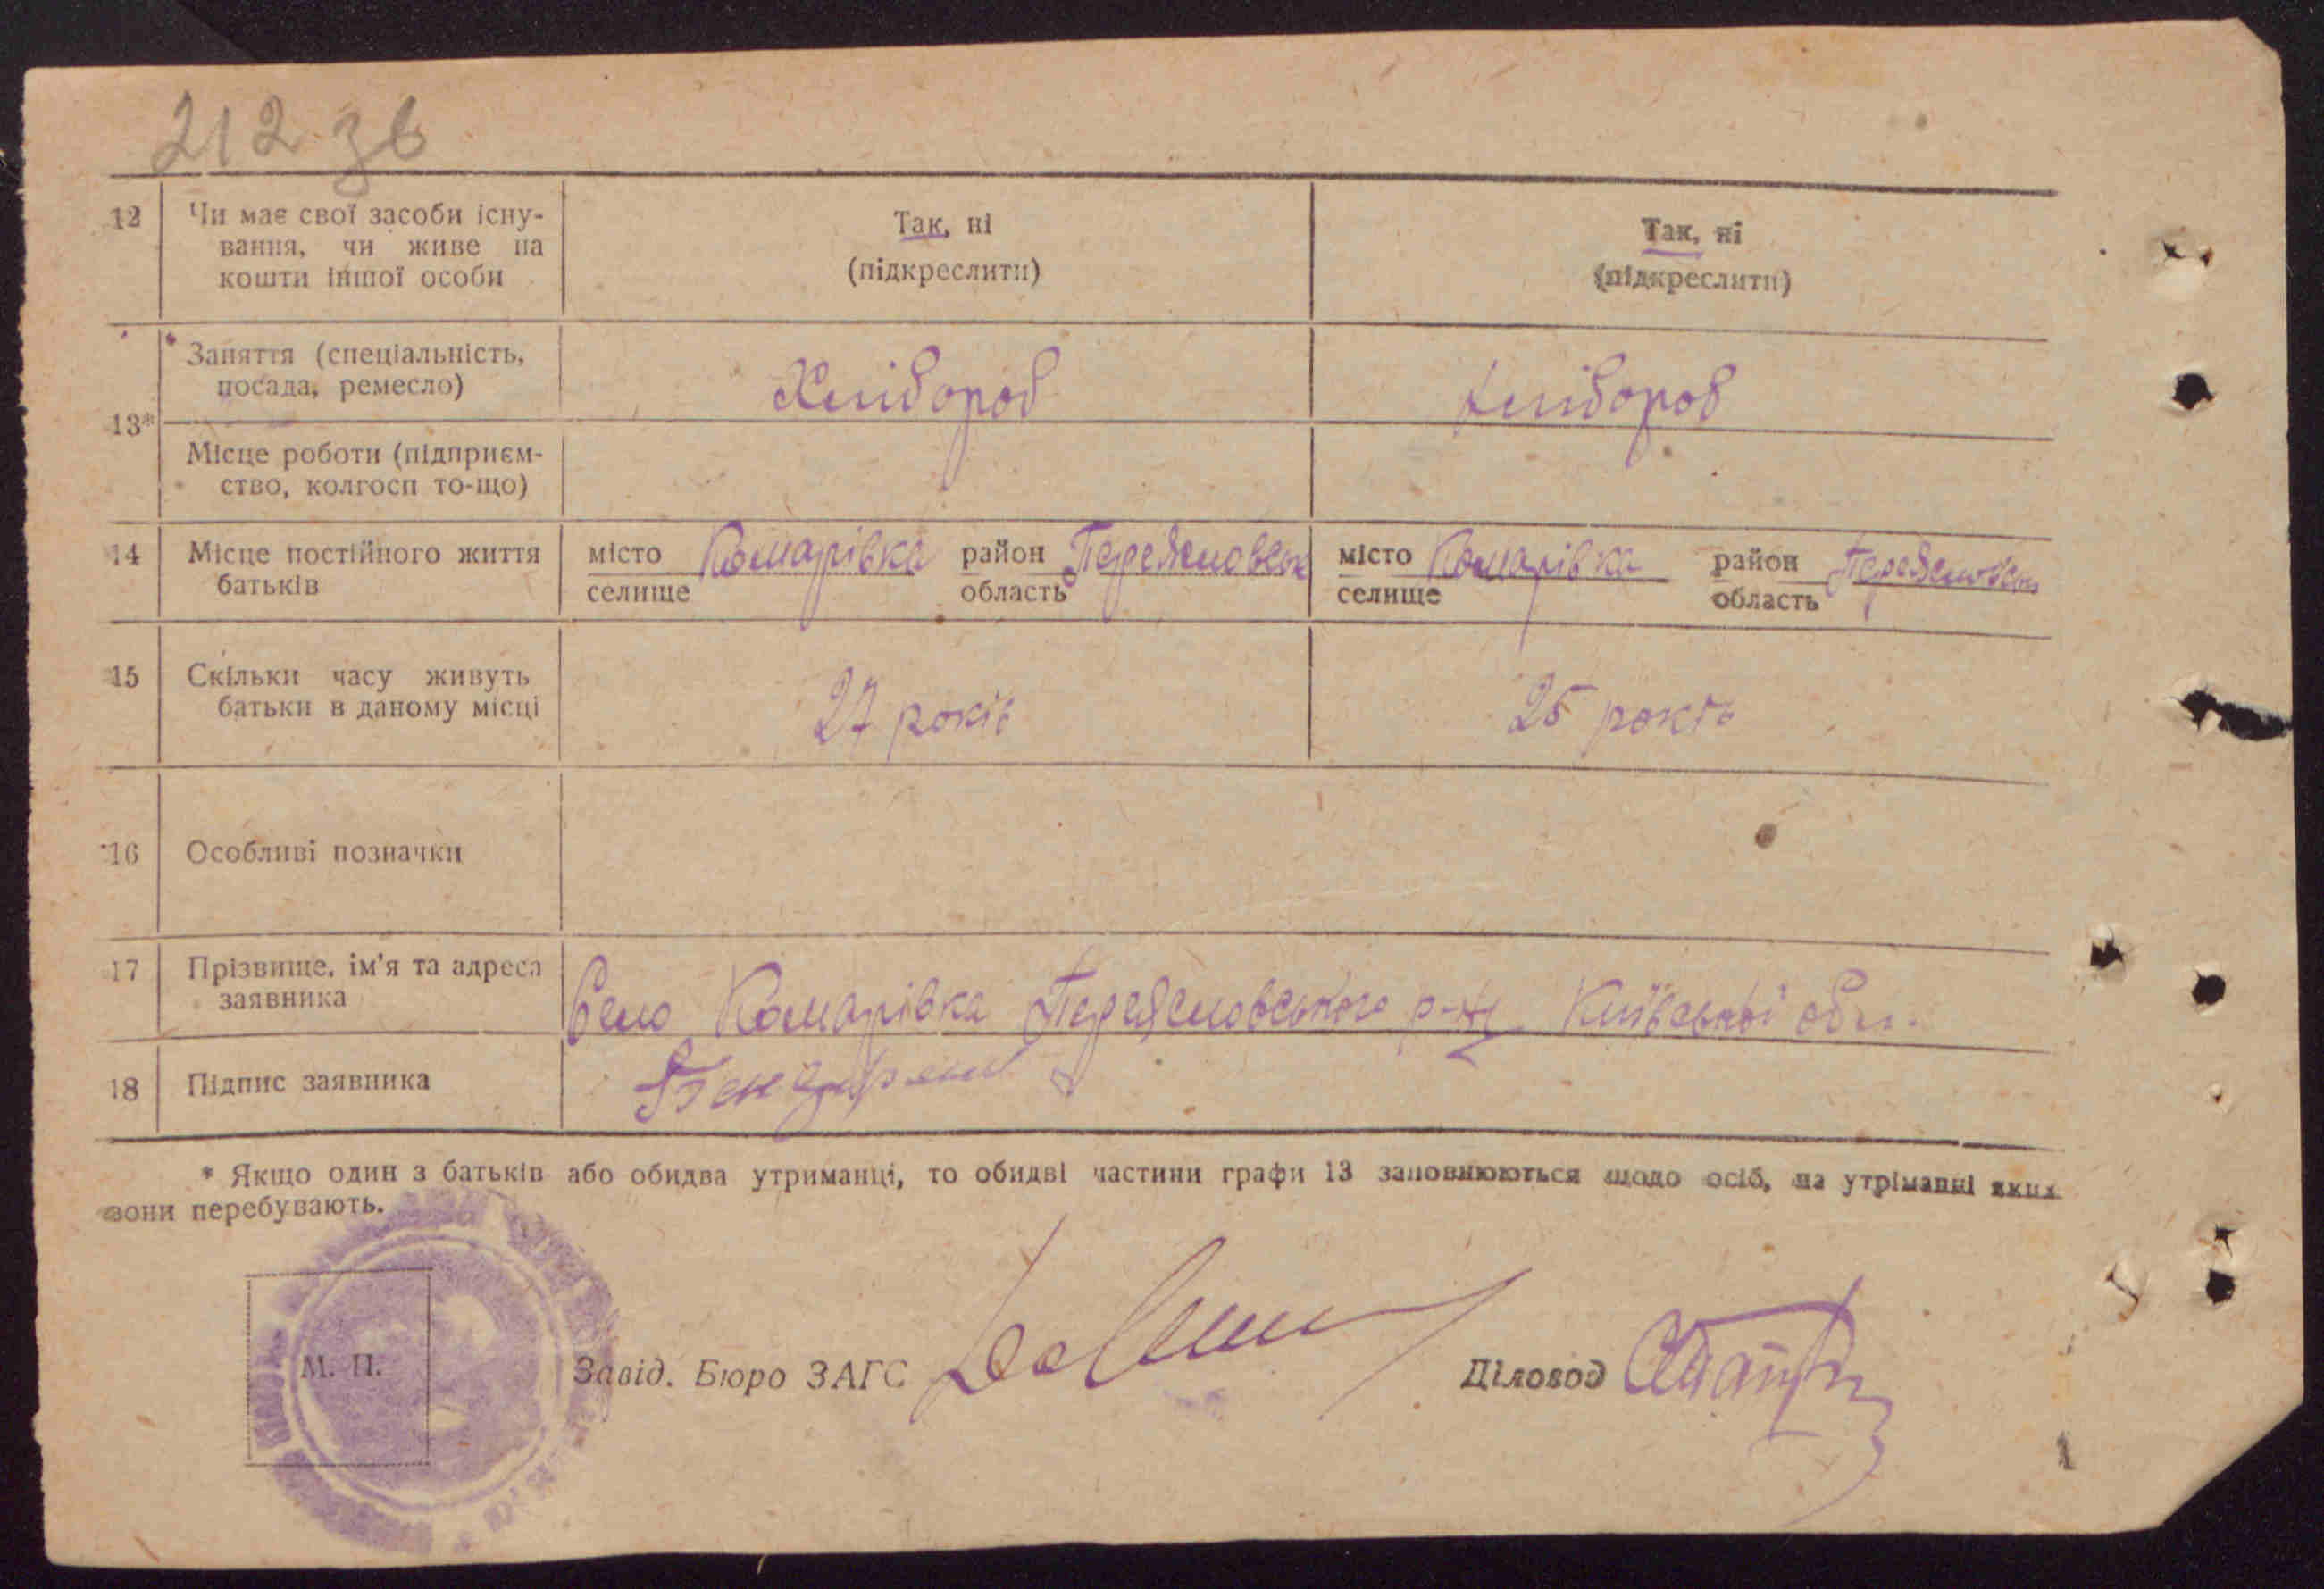 212 зв
12 Чи має свої засоби існу- Так, ні Так, ні
вання, чи живе на (підкреслити) (підкреслити)
кошти іншої особи
13* Заняття (спеціальність, Хлібороб Хлібороб
посада, ремесло)
Місце роботи (підприєм-
ство, колгосп то-що)
14 Місце постійного життя місто Комарівка район Переясловськ місто Комарівка район Переяслов
батьків селище область селище область
15 Скільки часу живуть 27 років 25 років
батьки в даному місці
16 Особливі позначки
17 Прізвище, ім'я та адреса Село Комарівка Переясловського р-ну Київської обл.
заявника
18 Підпис заявника
* Якщо один з батьків або обидва утриманці, то обидві частини графи 13 заповнюються щодо осіб, на утріманні яких
вони перебувають.
М. П. Завід. Бюро ЗАГС Діловод